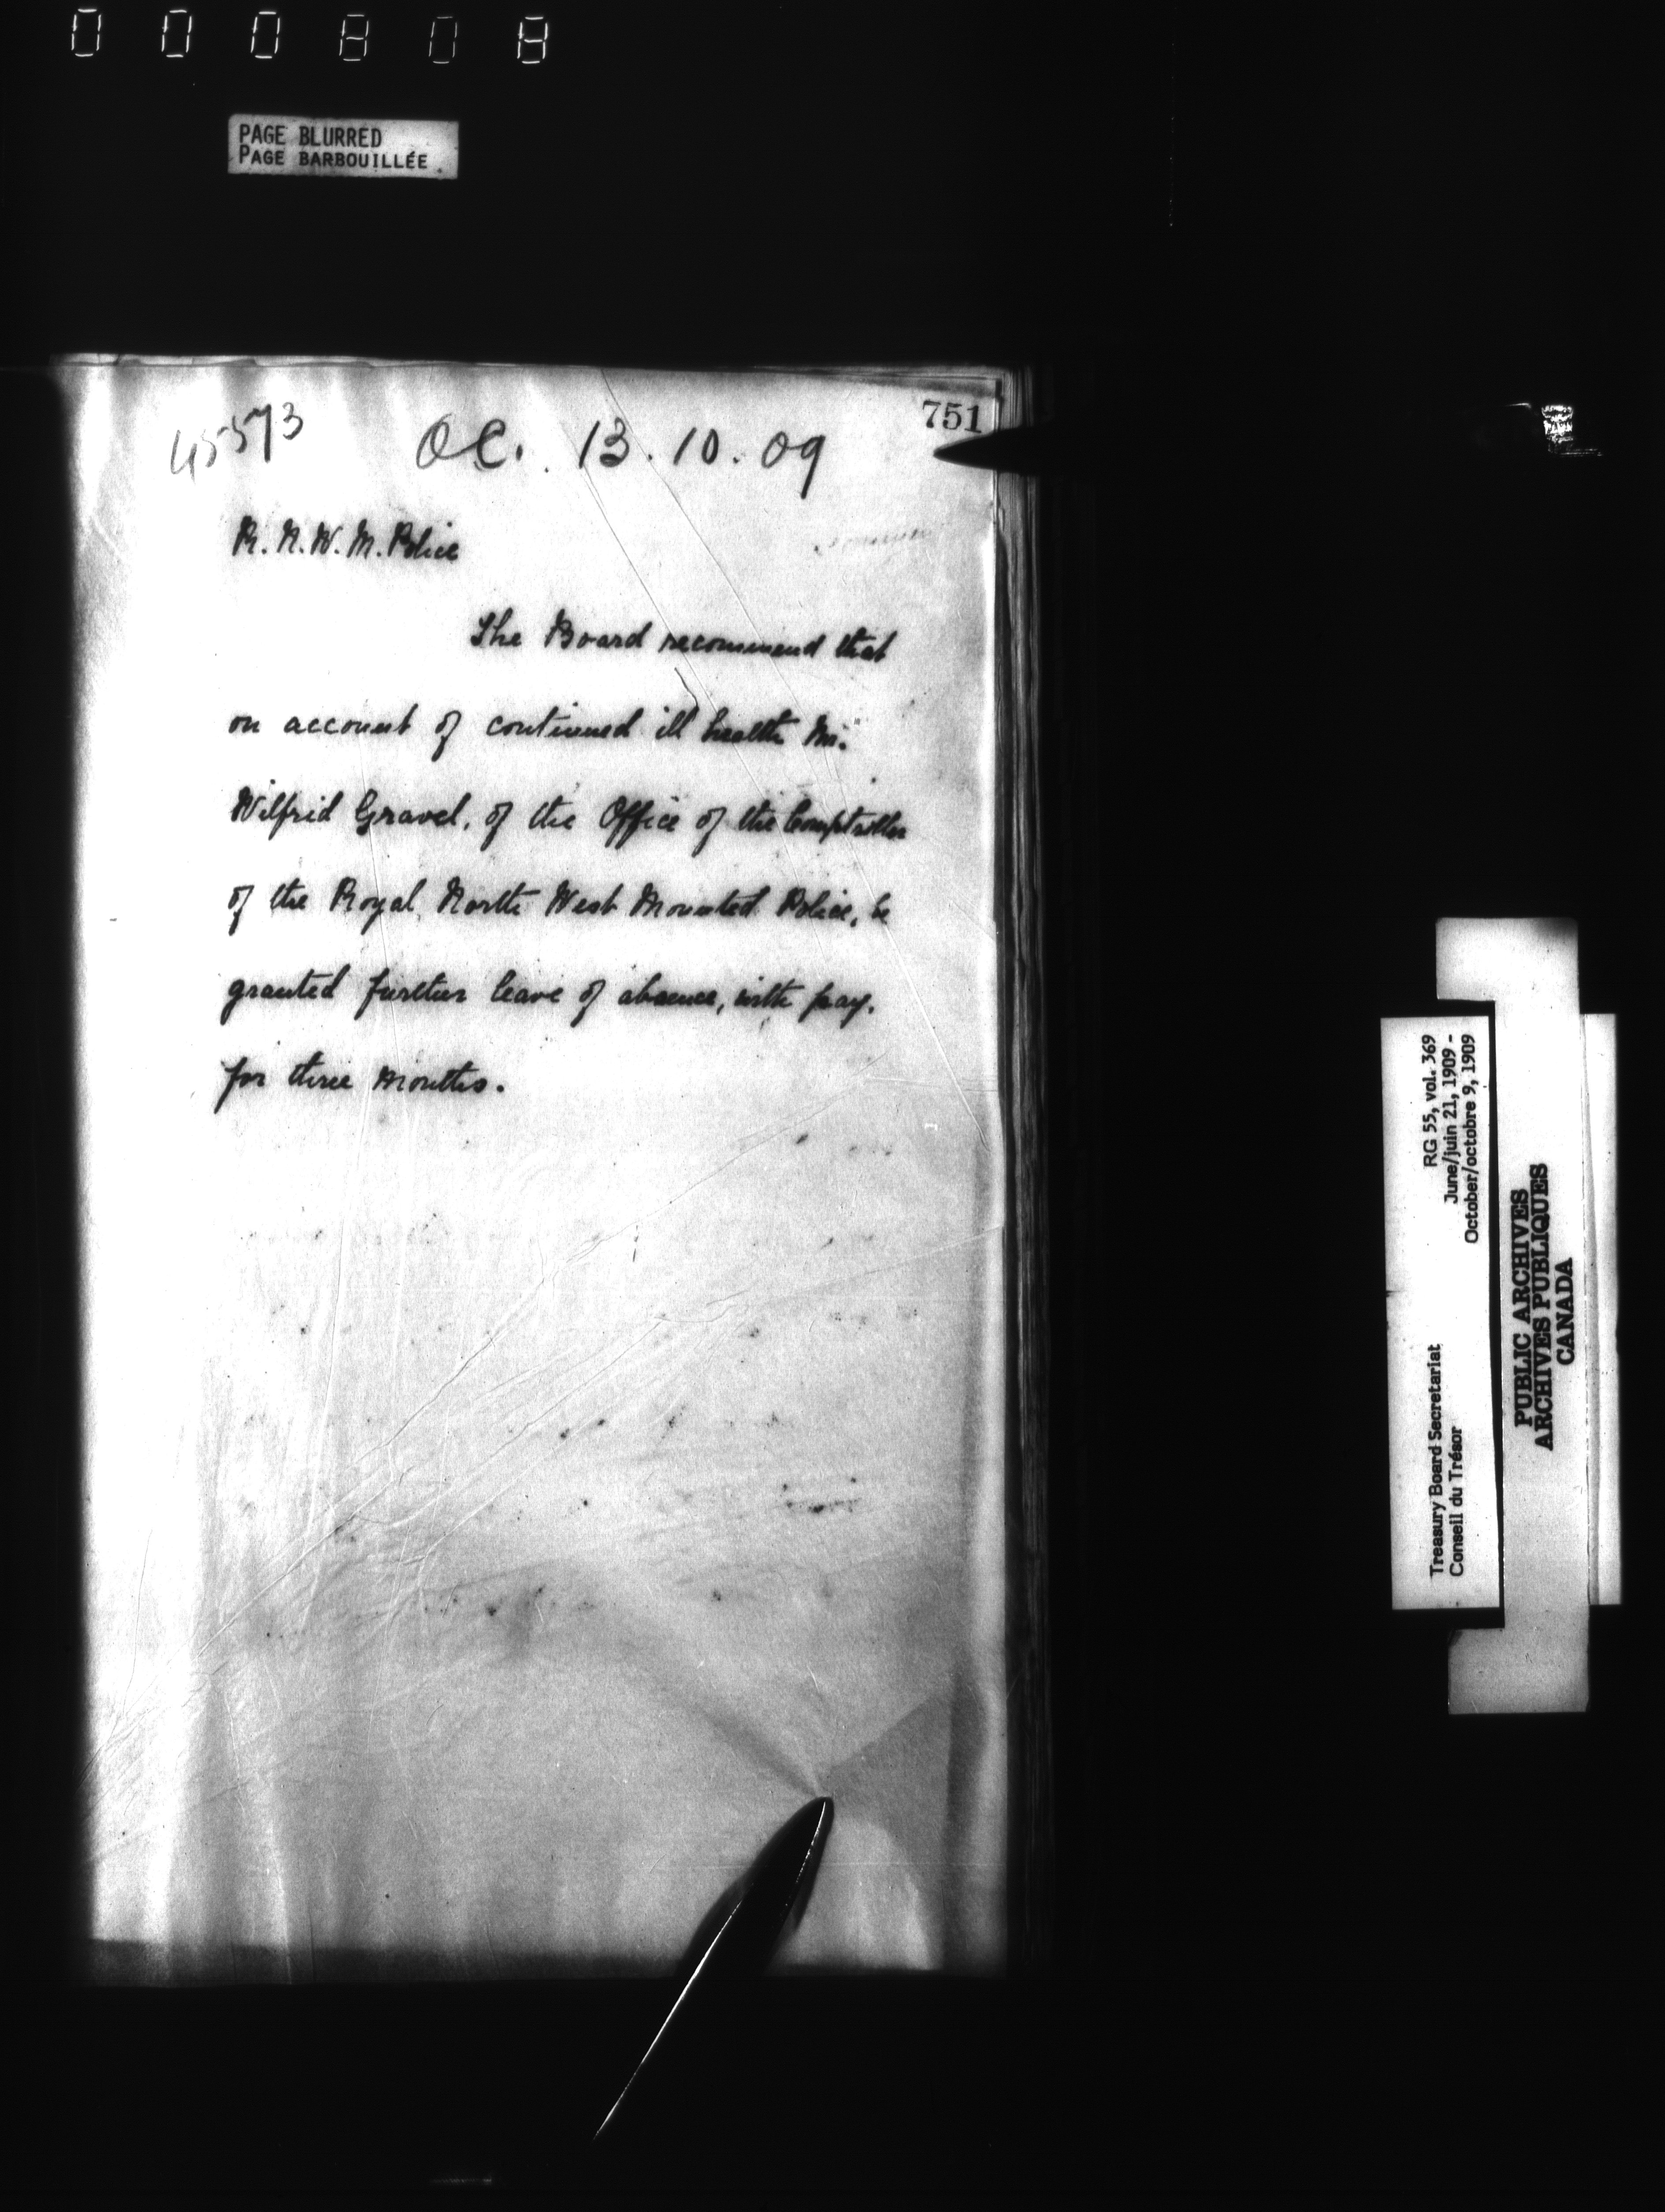 000808
PAGE BLURRED
PAGE BARBOUILLÉE
751
45573
OC. 13.10.09
R.N.W.M. Police
The Board recommend that
on account of continued ill health Mr.
Wilfrid Gravel, of the Office of the Comptroller
of the Royal North West Mounted Police, be
granted further leave of absence, with pay.
for three months.
RG 55, vol. 369
June/juin 21, 1909 -
October/octobre 9, 1909
Treasury Board Secretariat
Conseil du Trésor
PUBLIC ARCHIVES
ARCHIVES PUBLIQUES
CANADA